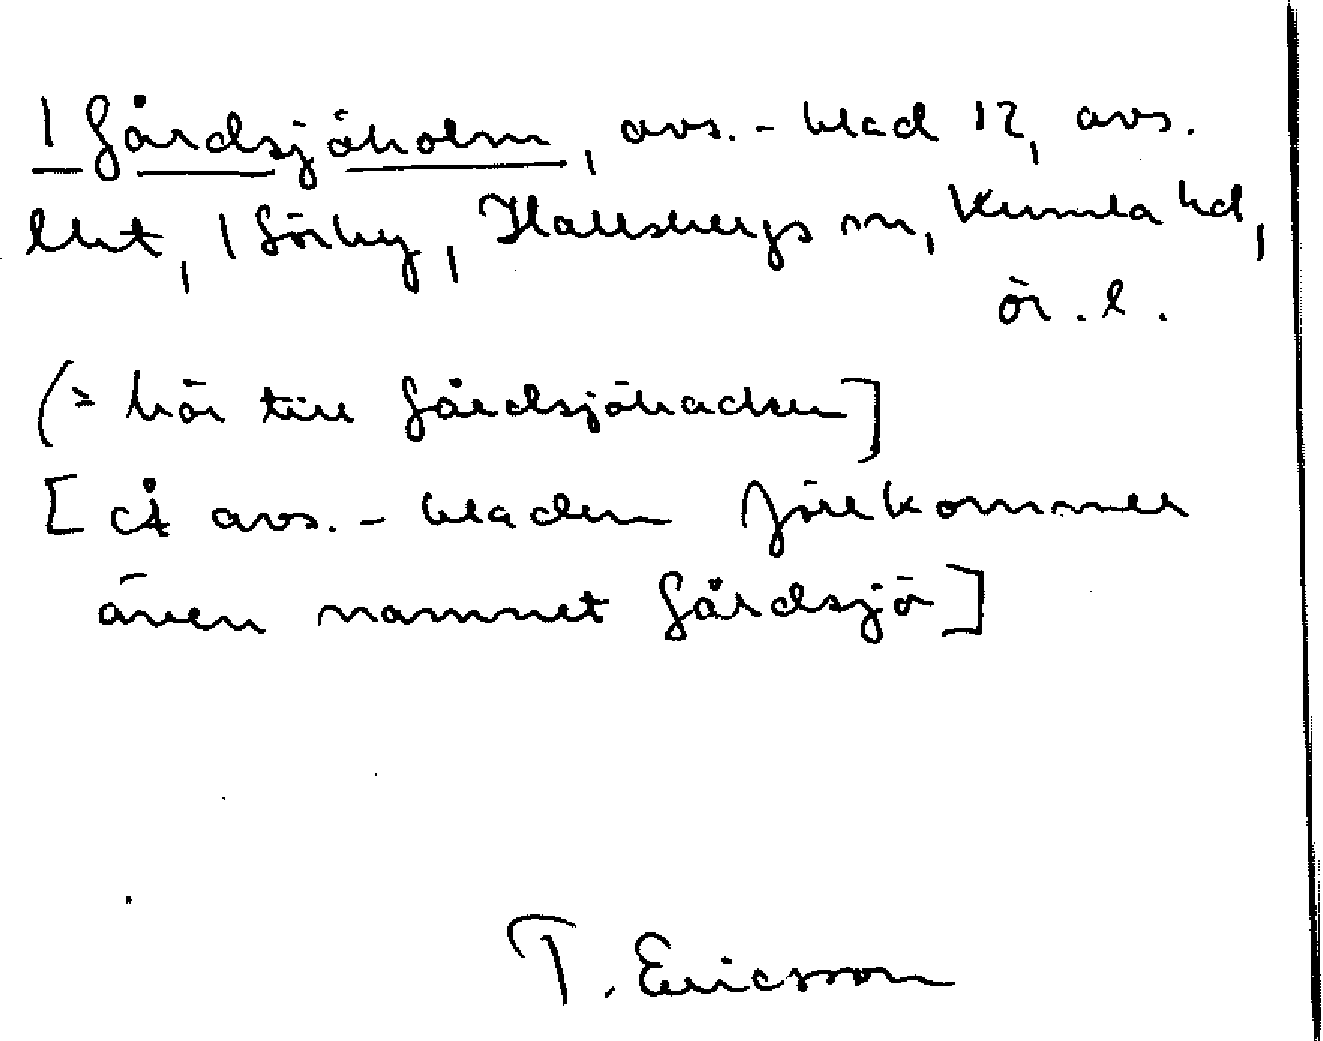 1 Gårdsjöholm, avs.-blad 12, avs.
lht, 1 Sörby, Hallsbergs sn, Kumla hd,
ör. l.
(> hör till Gårdsjöbacken]
[å avs.-bladen förekommer
även namnet Gårdsjö]
T. Ericsson